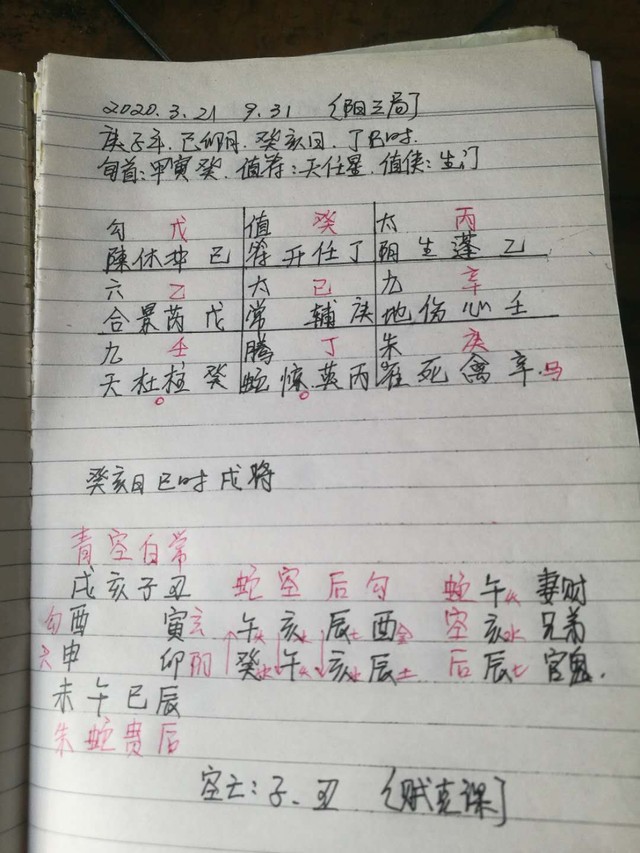 2020.3.21 9.31 〔阳三局〕
庚子年.己卯月.癸亥日.丁巳时.
旬首:甲寅癸.值符:天任星.值使:生门
勾 戊 值 癸 太 丙
陳休冲己 符开任丁 阴生蓬乙
六 乙 太 己 九 辛
合景芮戊 常 辅庚 地伤心壬
九 壬 腾 丁 朱 庚
天杜柱癸 蛇惊英丙 雀死禽辛.马
癸亥日巳时戌将
青空白常
戌亥子丑 蛇空后勾 蛇午火妻财
勾酉 寅玄 午火亥水辰土酉金 空亥水兄弟
六申 卯阴 癸水午火亥水辰土 后辰土官鬼.
未午巳辰
朱蛇贵后
空亡:子、丑 〔贼克课〕